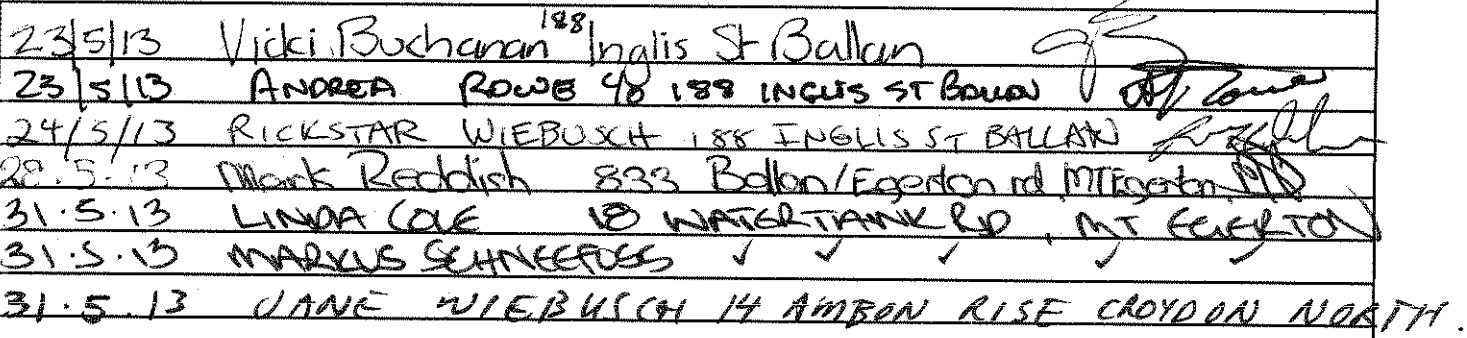 23/5/13 Vicki Buchanan 188 Inglis St Ballan
23/5/13 ANDREA ROWE 48 188 INGLIS ST BALLAN
24/5/13 RICKSTAR WIEBUSCH 188 INGLIS ST BALLAN
28.5.13 Mark Reddish 833 Ballan/Egerton rd MT Egerton
31.5.13 LINDA COLE 18 WATERTANK RD, MT EGERTON
31.5.13 MARKUS SCHNEEFUSS ✓ ✓ ✓ ✓ ✓
31.5.13 JANE WIEBUSCH 14 AMBON RISE CROYDON NORTH.